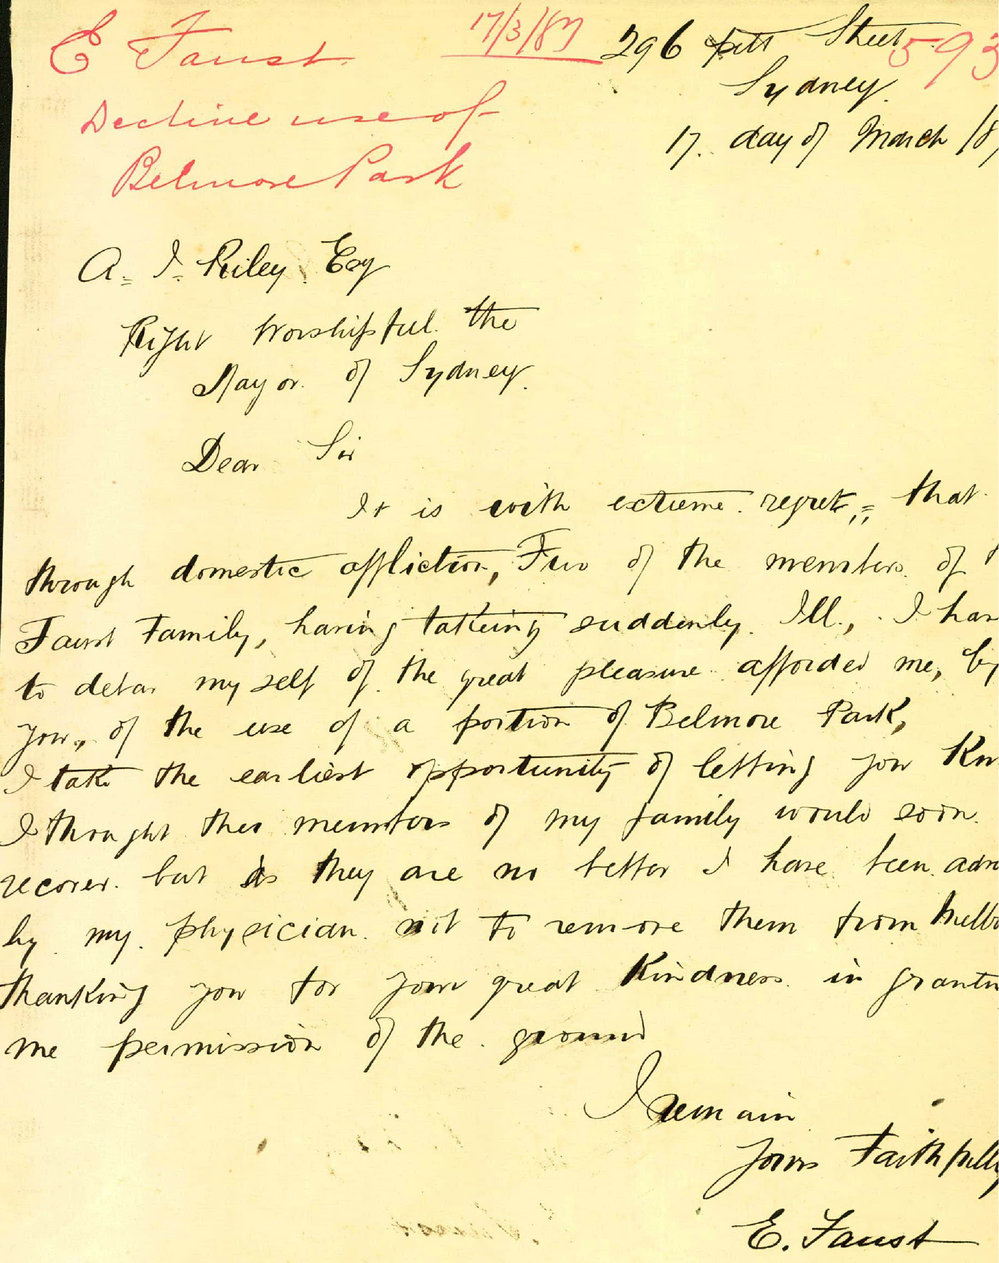 E Faust 17/3/87
Decline use of
Belmore Park
593
296 Pitt Street
Sydney
17. day of March /8
A. J. Riley Esq
Right Worshipful the
Mayor of Sydney.
Dear Sir
It is with extreme regret, that
through domestic affliction, Two of the members of
Faust Family, having takeing suddenly Ill., I hav
to debar my self of the great pleasure afforded me, by
you, of the use of a portion of Belmore Park,
I take the earliest opportunity of letting you Kn
I thought the members of my family would soon
recover but as they are no better I have been adv
by my physician not to remove them from Melb
thanking you for your great Kindness in grantin
me permission of the ground
I remain
yours Faithfully
E. Faust